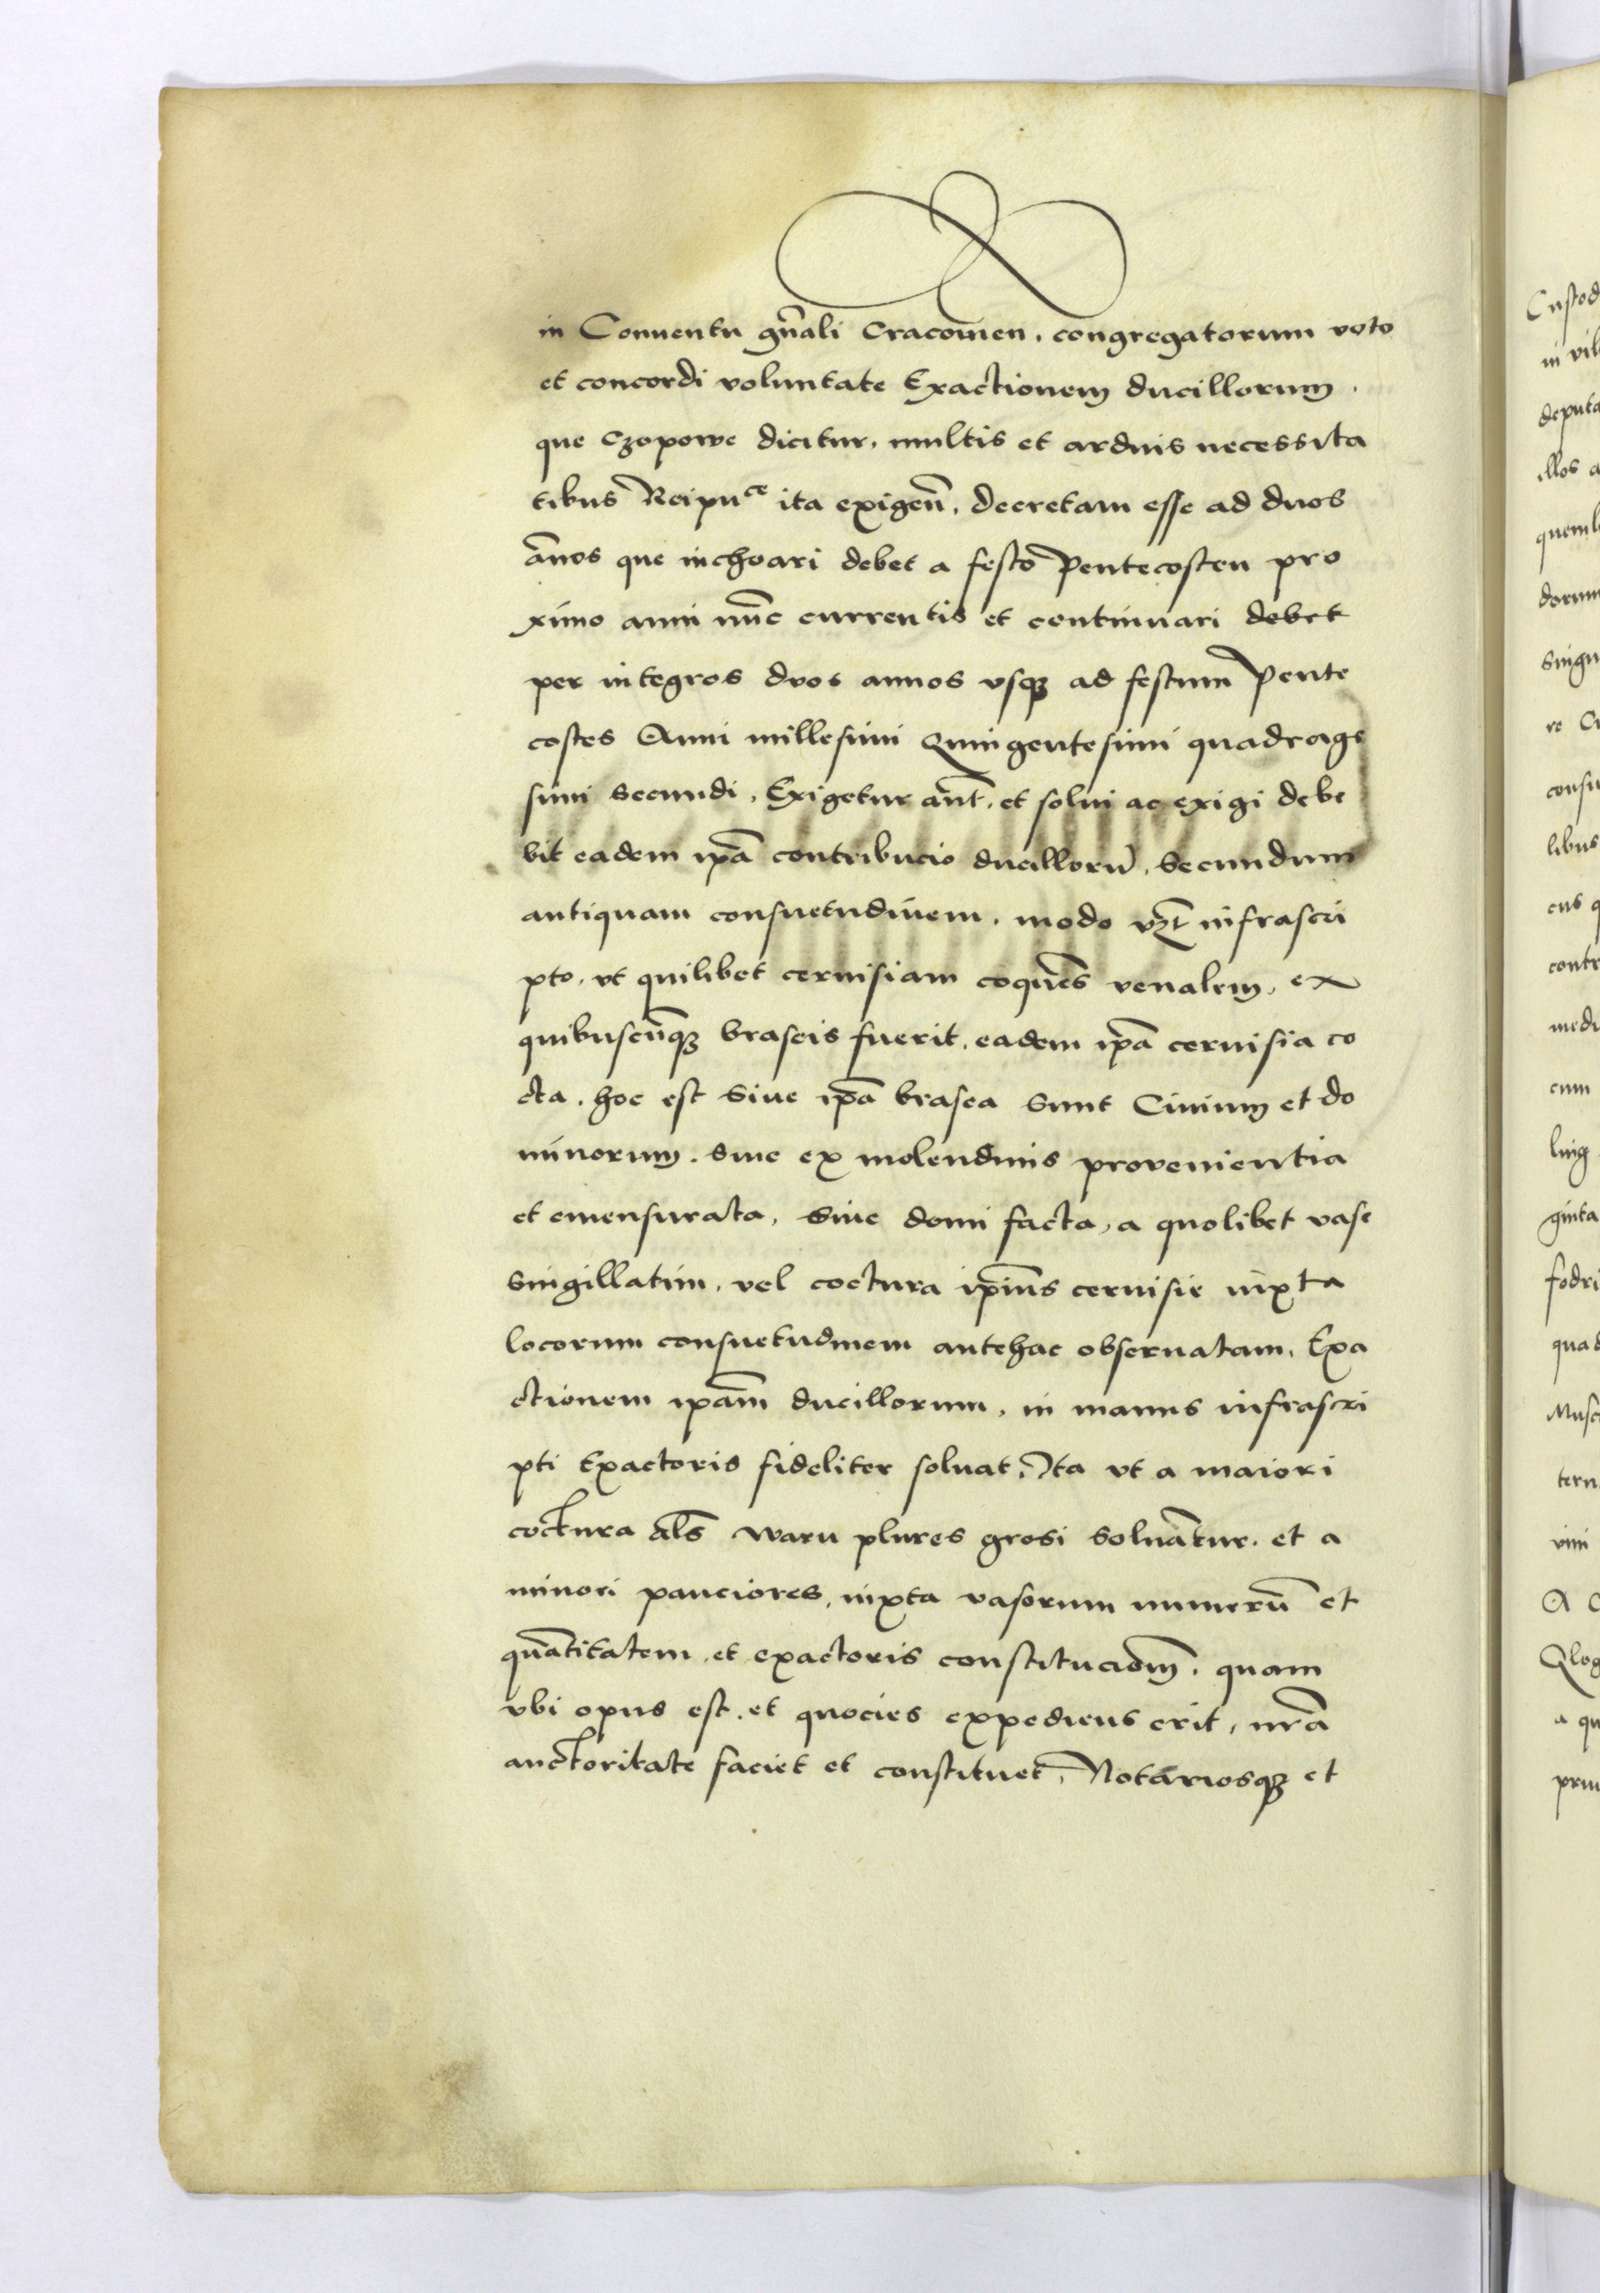 in Conuentu gn̄ali Cracouien. congregatorum voto
et concordi voluntate Exactionem ducillorum.
que Czopowe dicitur, multis et arduis necessita
tibus Reipuce ita exigen̄. decretam esse ad duos
an̄os que inchoari debet a festo Pentecosten pro
ximo anni nūc currentis et continuari debet
per integros duos annos vsq ad festum Pente
costes Anni millesimi Quingentesimi quadrage
simi secundi. Exigetur aut̄. et solui ac exigi debe
bit eadem ip̄a contribucio ducillorū. Secundum
antiquam consuetudinem. modo vzt̄ infrascri
pto. vt quilibet ceruisiam coquēs venalem, ex
quibuscūq braseis fuerit. eadem ip̄a ceruisia co
cta. hoc est siue ip̄a brasea sunt Ciuium et do
minorum. siue ex molendinis provenientia
et emensurata, siue domi facta, a quolibet vase
singillatim, vel coctura ip̄ius ceruisie iuxta
locorum consuetudinem antehac obseruatam. Exa
ctionem ip̄am ducillorum, in manus infrascri
pti Exactoris fideliter soluat, Ita vt a maiori
coctura al̄s waru plures grosi soluātur. et a
minori pauciores, iuxta vasorum numerū et
quātitatem. et exactoris constitucōm̄. quam
vbi opus est. et quocies expediens erit, nr̄a
auctoritate faciet et constituet, Notariosq et
Custod
in vil
deputa
illos a
queml
dorum
singu
consu
libus
cus q
contr
medi
cum
ginta
fodri
quad
a qu